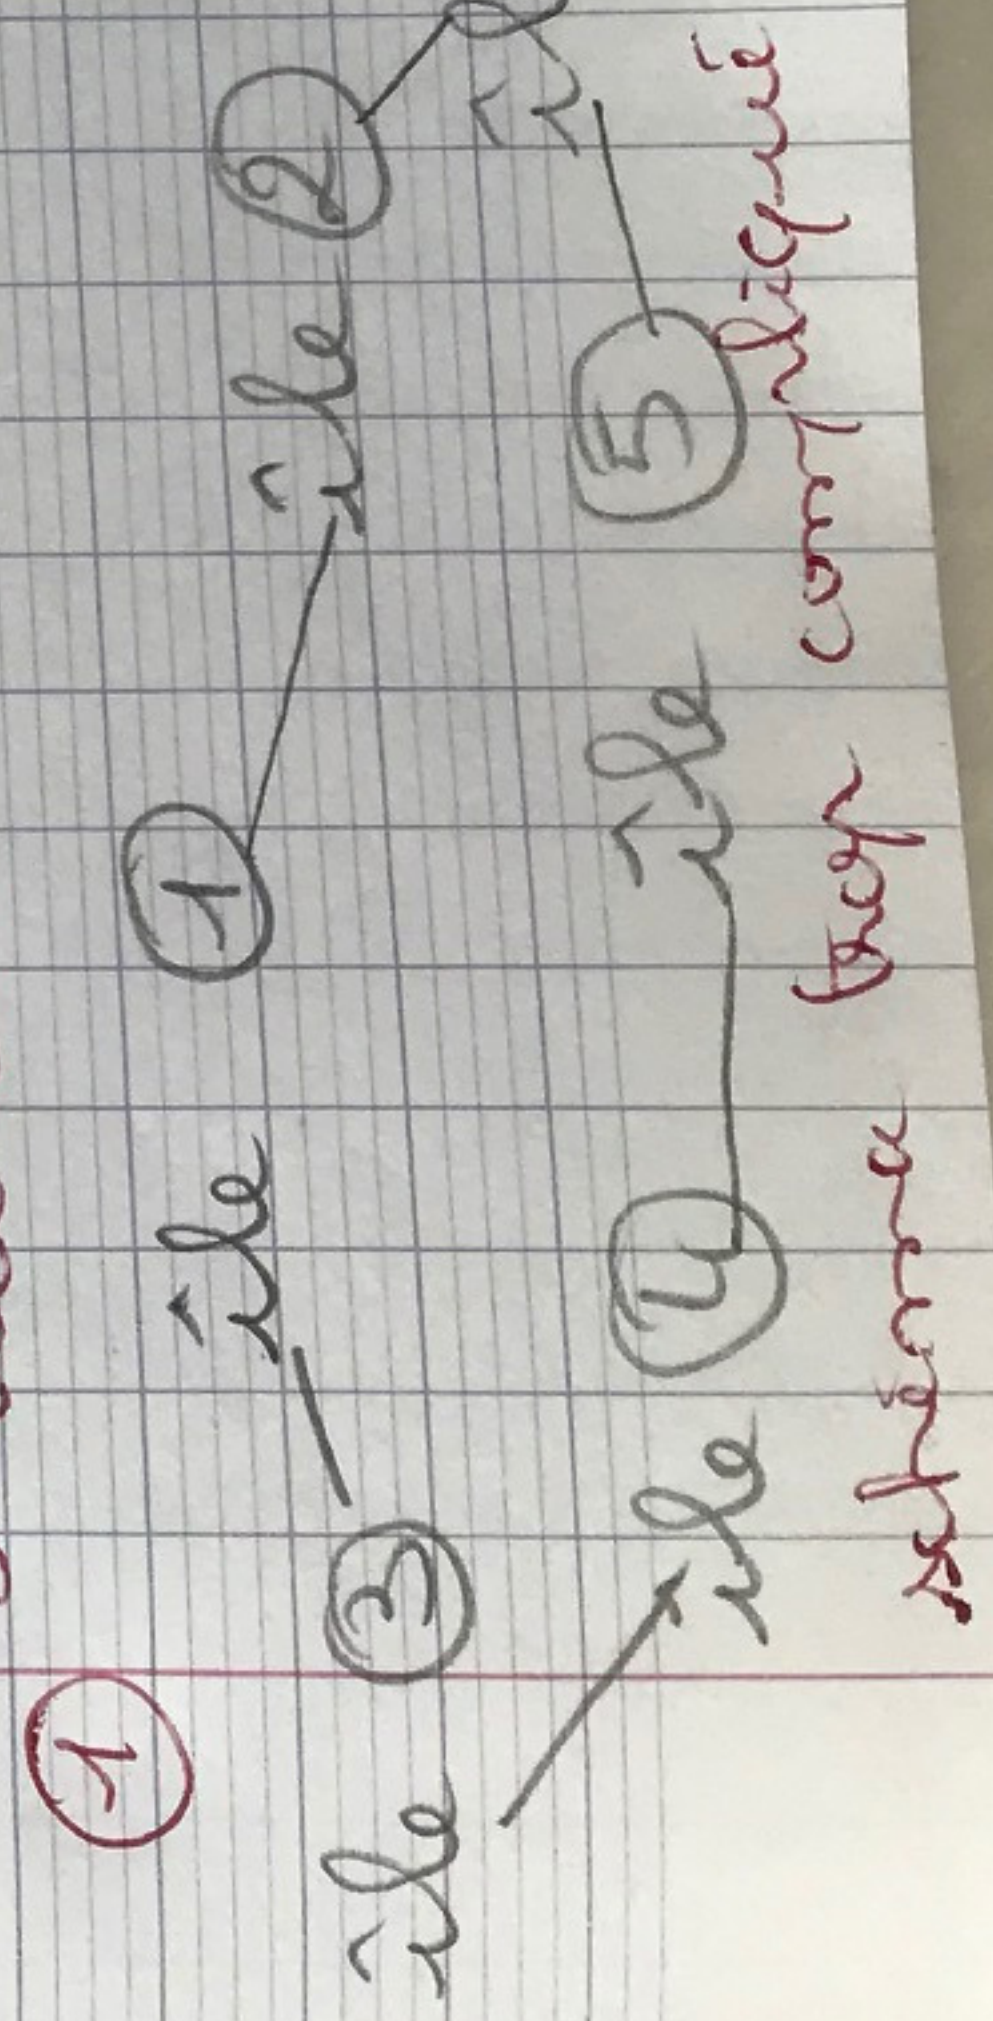 1
île 1 île 2
île 3
île 4 île 5
schéma trop compliqué